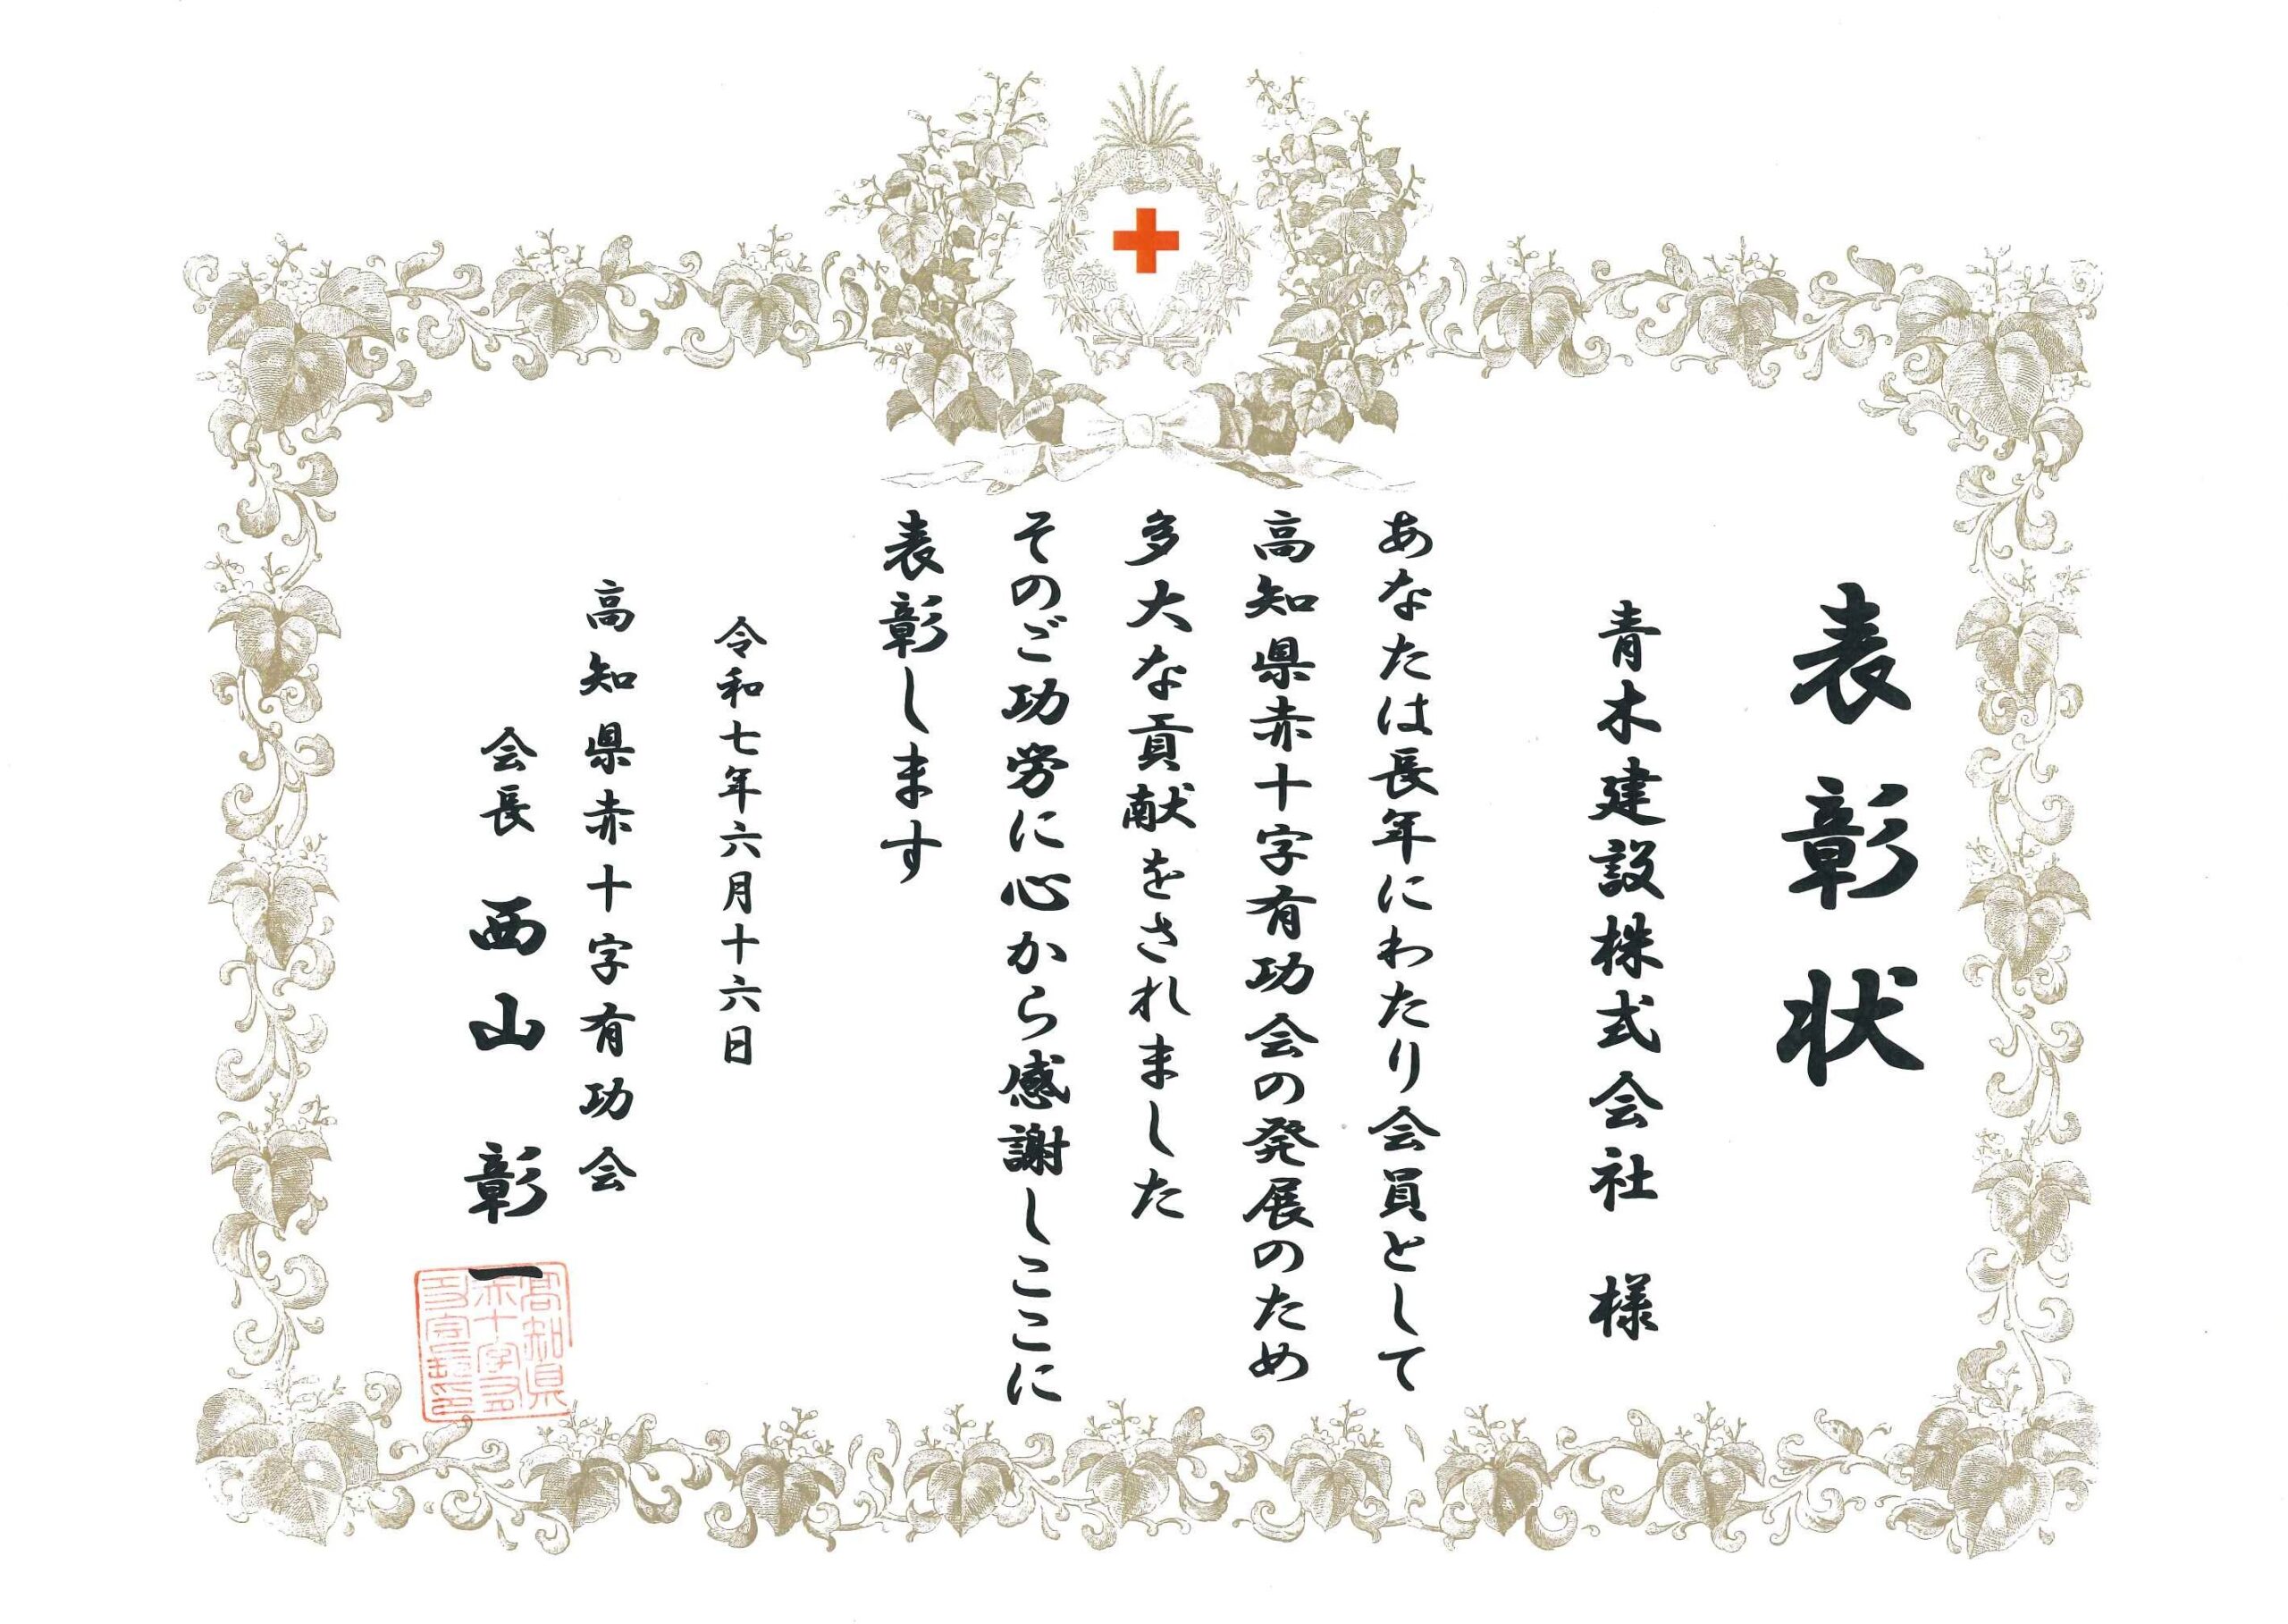 表彰状
青木建設株式会社 様
あなたは長年にわたり会員として
高知県赤十字有功会の発展のため
多大な貢献をされました
そのご功労に心から感謝しここに
表彰します
令和七年六月十六日
高知県赤十字有功会
会長 西山 彰一
高知県
赤十字有
功会長印